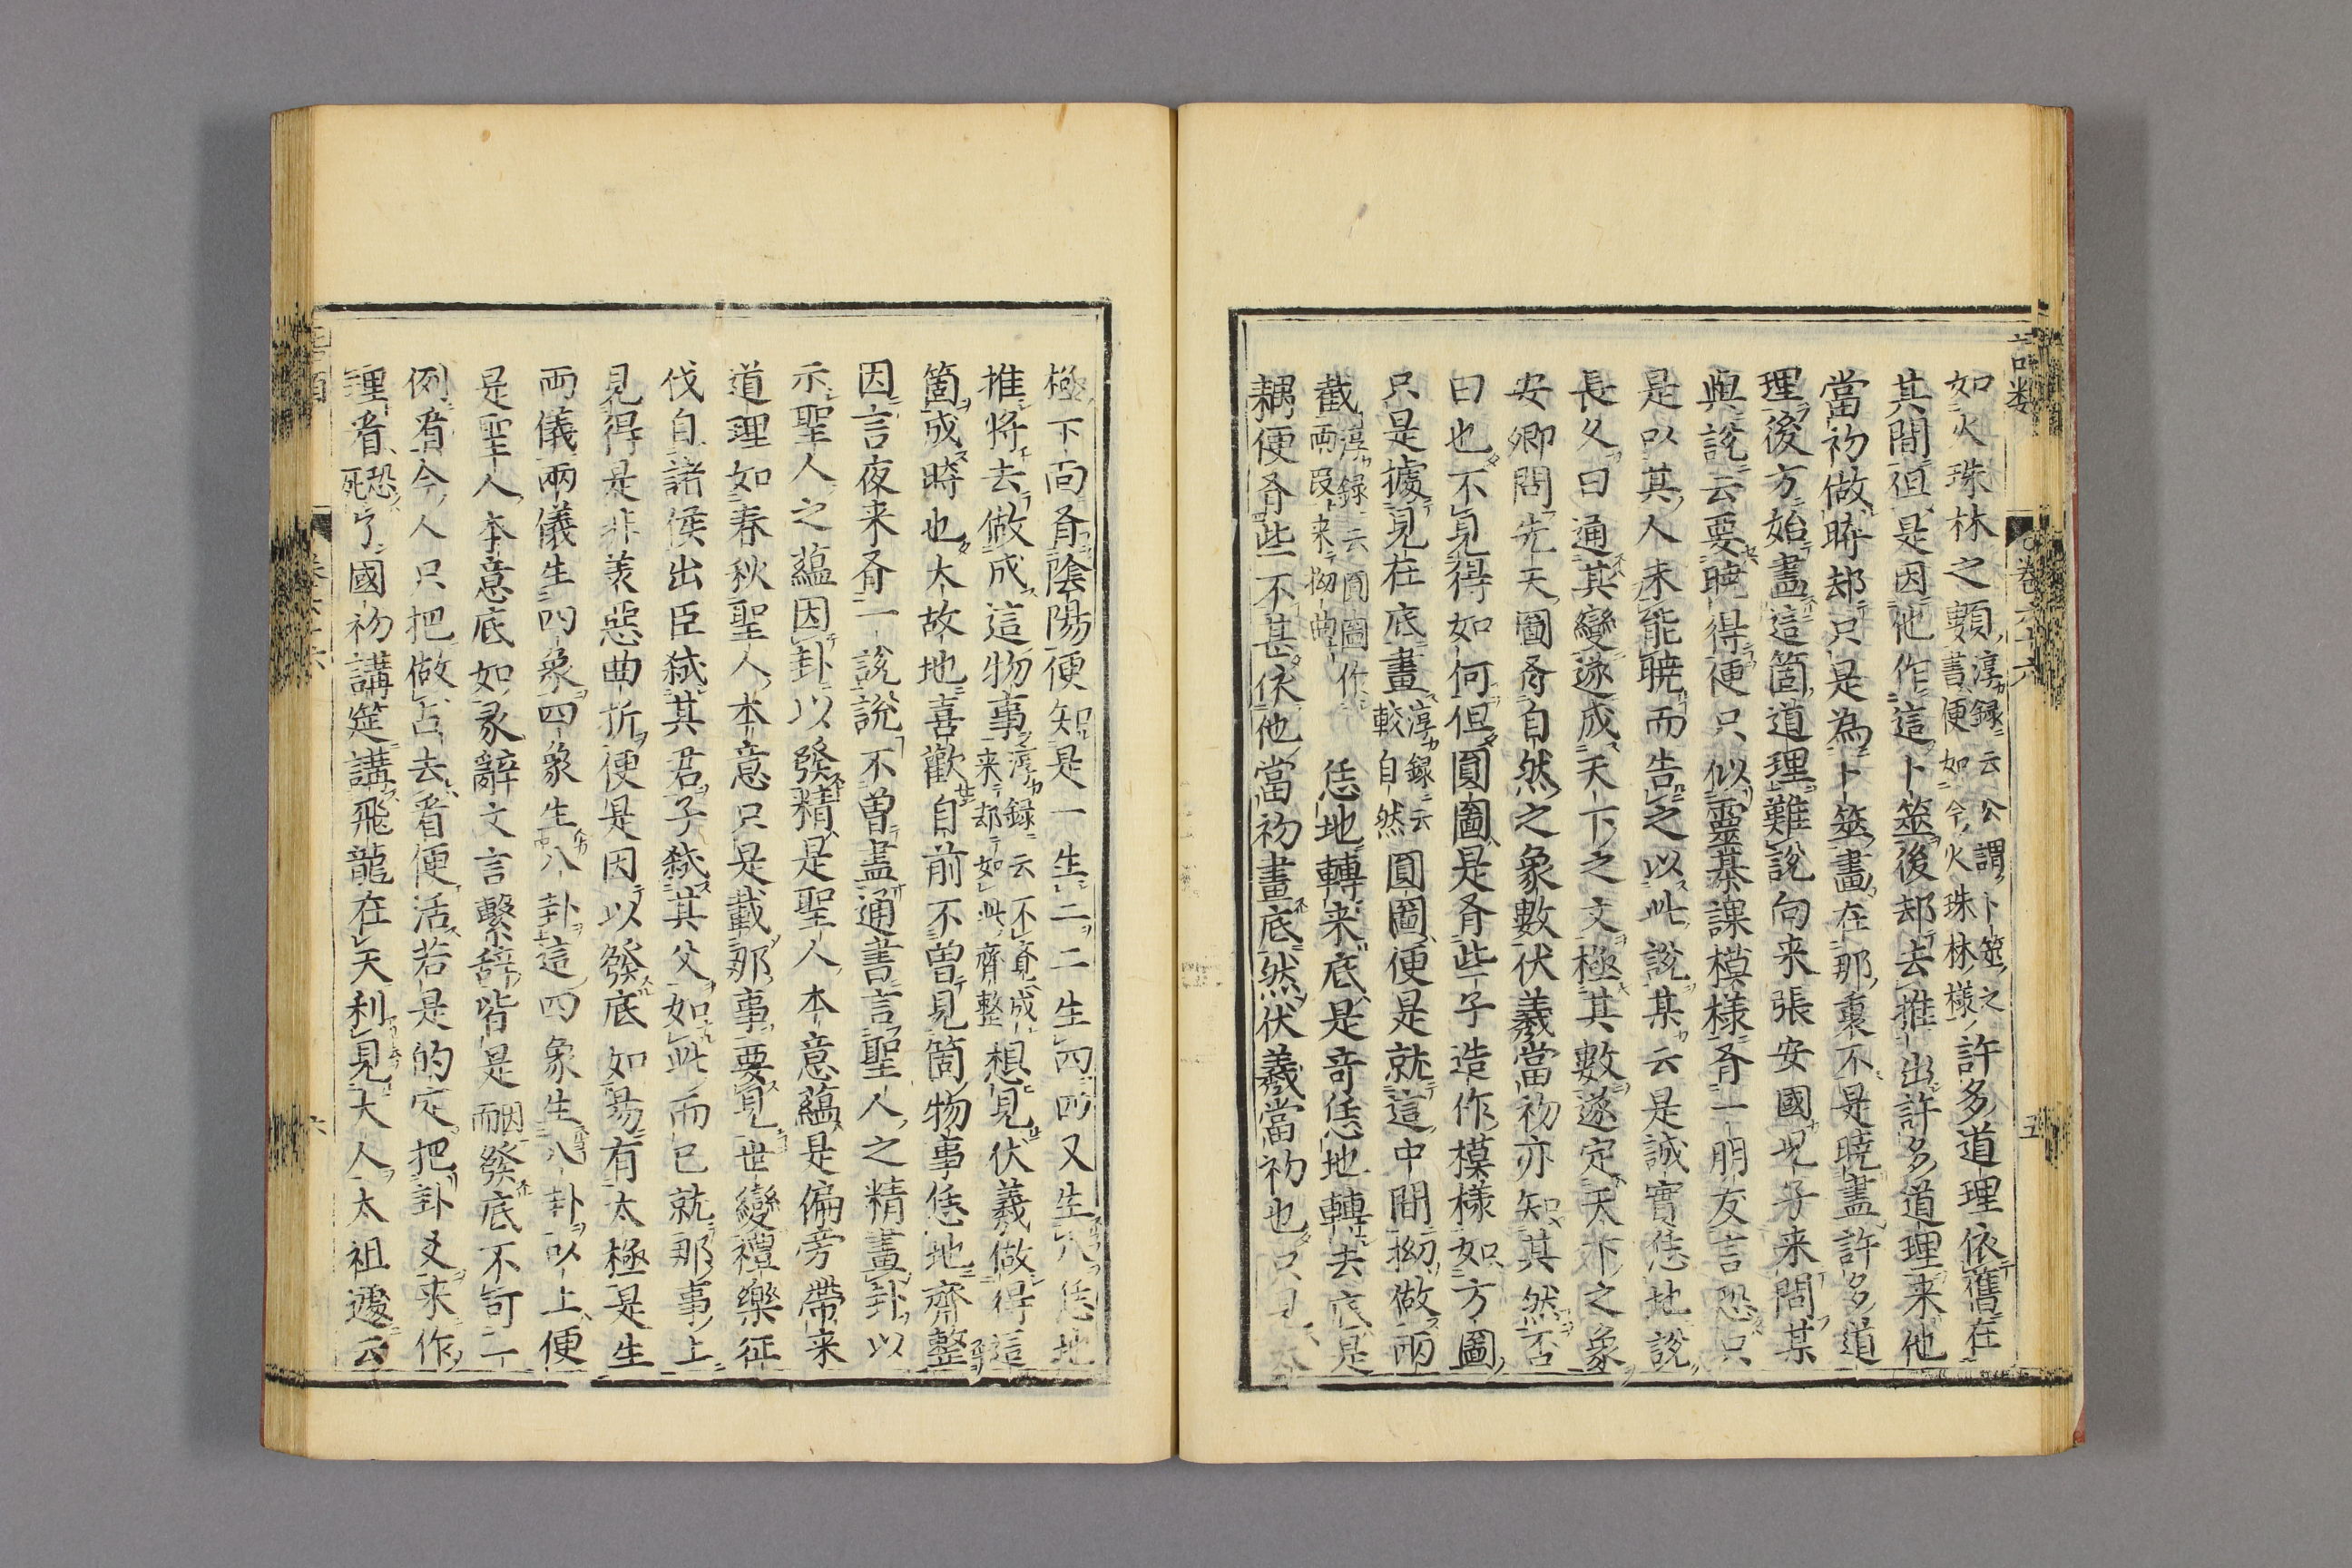 語類 卷六十六 五
如火珠林之類淳録云公謂卜筮之書便如今火珠林様許多道理依舊在
其間但是因他作這卜筮後却去推出許多道理来他
當初做時却只是為卜筮畫在那裏不是曉盡許多道
理後方始畫這箇道理難說向来張安國兒子来問某
與說云要曉得便只似靈棊課模様有一朋友言恐只
是以其人未能曉而告之以此說某云是誠實恁地說
長久曰通其變遂成天下之文極其數遂定天下之象
安卿問先天圖有自然之象數伏羲當初亦知其然否
曰也不見得如何但圓圖是有些子造作模様如方圖
只是據見在底畫淳録云較自然圓圖便是就這中間拗做兩
截淳録云圓圖作兩段来拗曲恁地轉来底是奇恁地轉去底是
耦便有些不甚依他當初畫底然伏羲當初也只見太
極下面有陰陽便知是一生二二生四四又生八恁地
推將去做成這物事淳録云不覺成来却如此齊整想見伏羲做得這
箇成時也太故地喜歡自前不曽見箇物事恁地齊整
因言夜来有一說說不曽盡通書言聖人之精畫卦以
示聖人之蘊因卦以發精是聖人本意蘊是偏旁帶来
道理如春秋聖人本意只是載那事要見世變禮樂征
伐自諸侯出臣弒其君子弒其父如此而已就那事上
見得是非羙惡曲折便是因以發底如易有太極是生
兩儀兩儀生四象四象生八卦這四象生八卦以上便
是聖人本意底如彖辭文言繫辭皆是因而發底不可一
例看今人只把做占去看便活若是的定把卦爻来作
理看恐死了國初講筵講飛龍在天利見大人太祖遽云
六